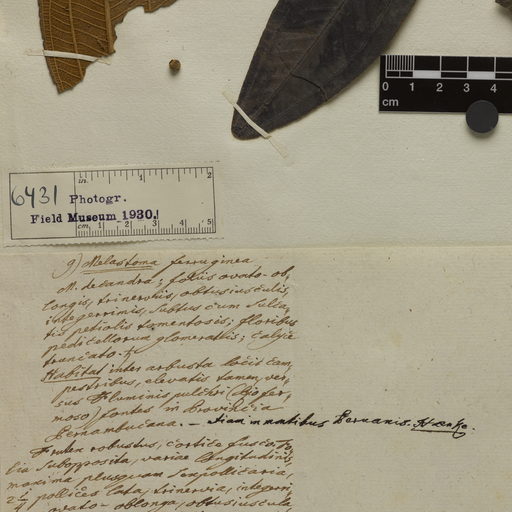 0 1 2 3 4
cm
6431 Photogr.
Field Museum 1930.
in. 1 2
cm. 1 2 3 4 5
9) Melastoma ferruginea
M. decandra; foliis ovato-ob,
longis, trinerviis, obtusiusculis,
integerrimis, subtus cum sulca,
tis petiolis tomentosis; floribus
pedicellorum glomeratis; calyce
truncato. 
Habitat inter arbusta locis cam,
pestribus, elevatis tamen, ver,
sus Fluminis pulchri (Rio fer,
moso) fontes in Provincia
Pernambucana. – etiam montibus Peruanis. Haenke.
Frutex robustus, cortice fusco. Fo,
lia subopposita, variae longitudinis
maxima plusquam sexpollicaria,
2 1/4 pollices lata, trinervia, integerri
ovato-oblonga, obtusiuscula,